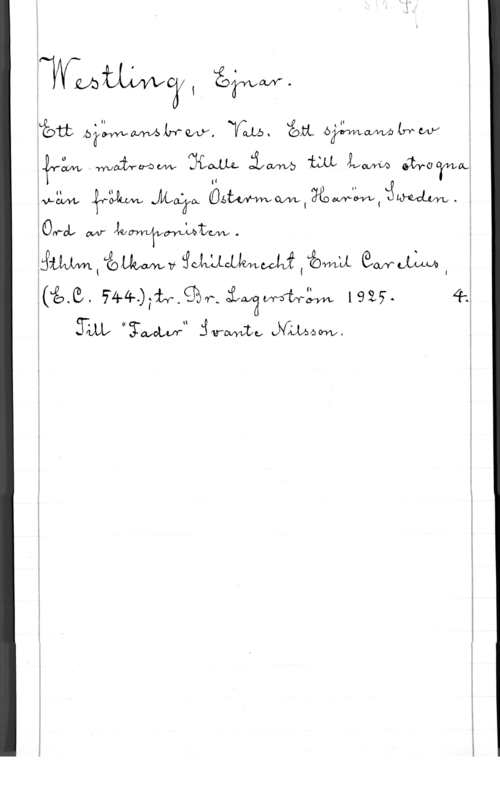 Westling, Ejnar.
Ett sjömansbrev. Vals. Ett sjömansbrev
från matrosen Kalle Lans till hans otrogna
vän fröken Maja Österman, Harön, Sweden.
Ord av komponisten.
Sthlm, Elkan & Schildknecht, Emil Carelius,
(E.C. 544.); tr. Br. Lagerström 1925. 4:
Till "Fader" Svante Nilsson.